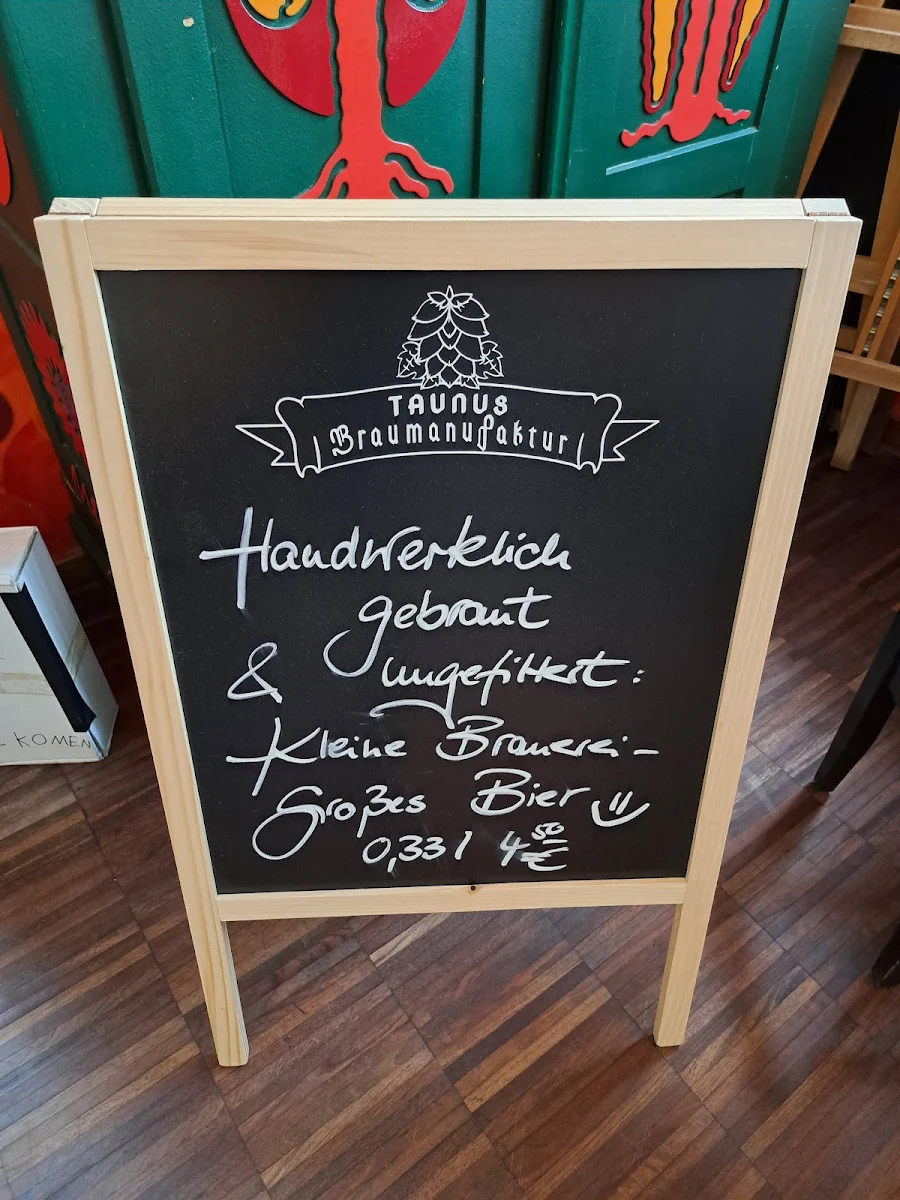 TAUNUS
Braumanufaktur
Handwerklich
gebraut
& ungefiltert:
Kleine Brauerei-
Großes Bier
0,33l 4 50 €
KOMEN